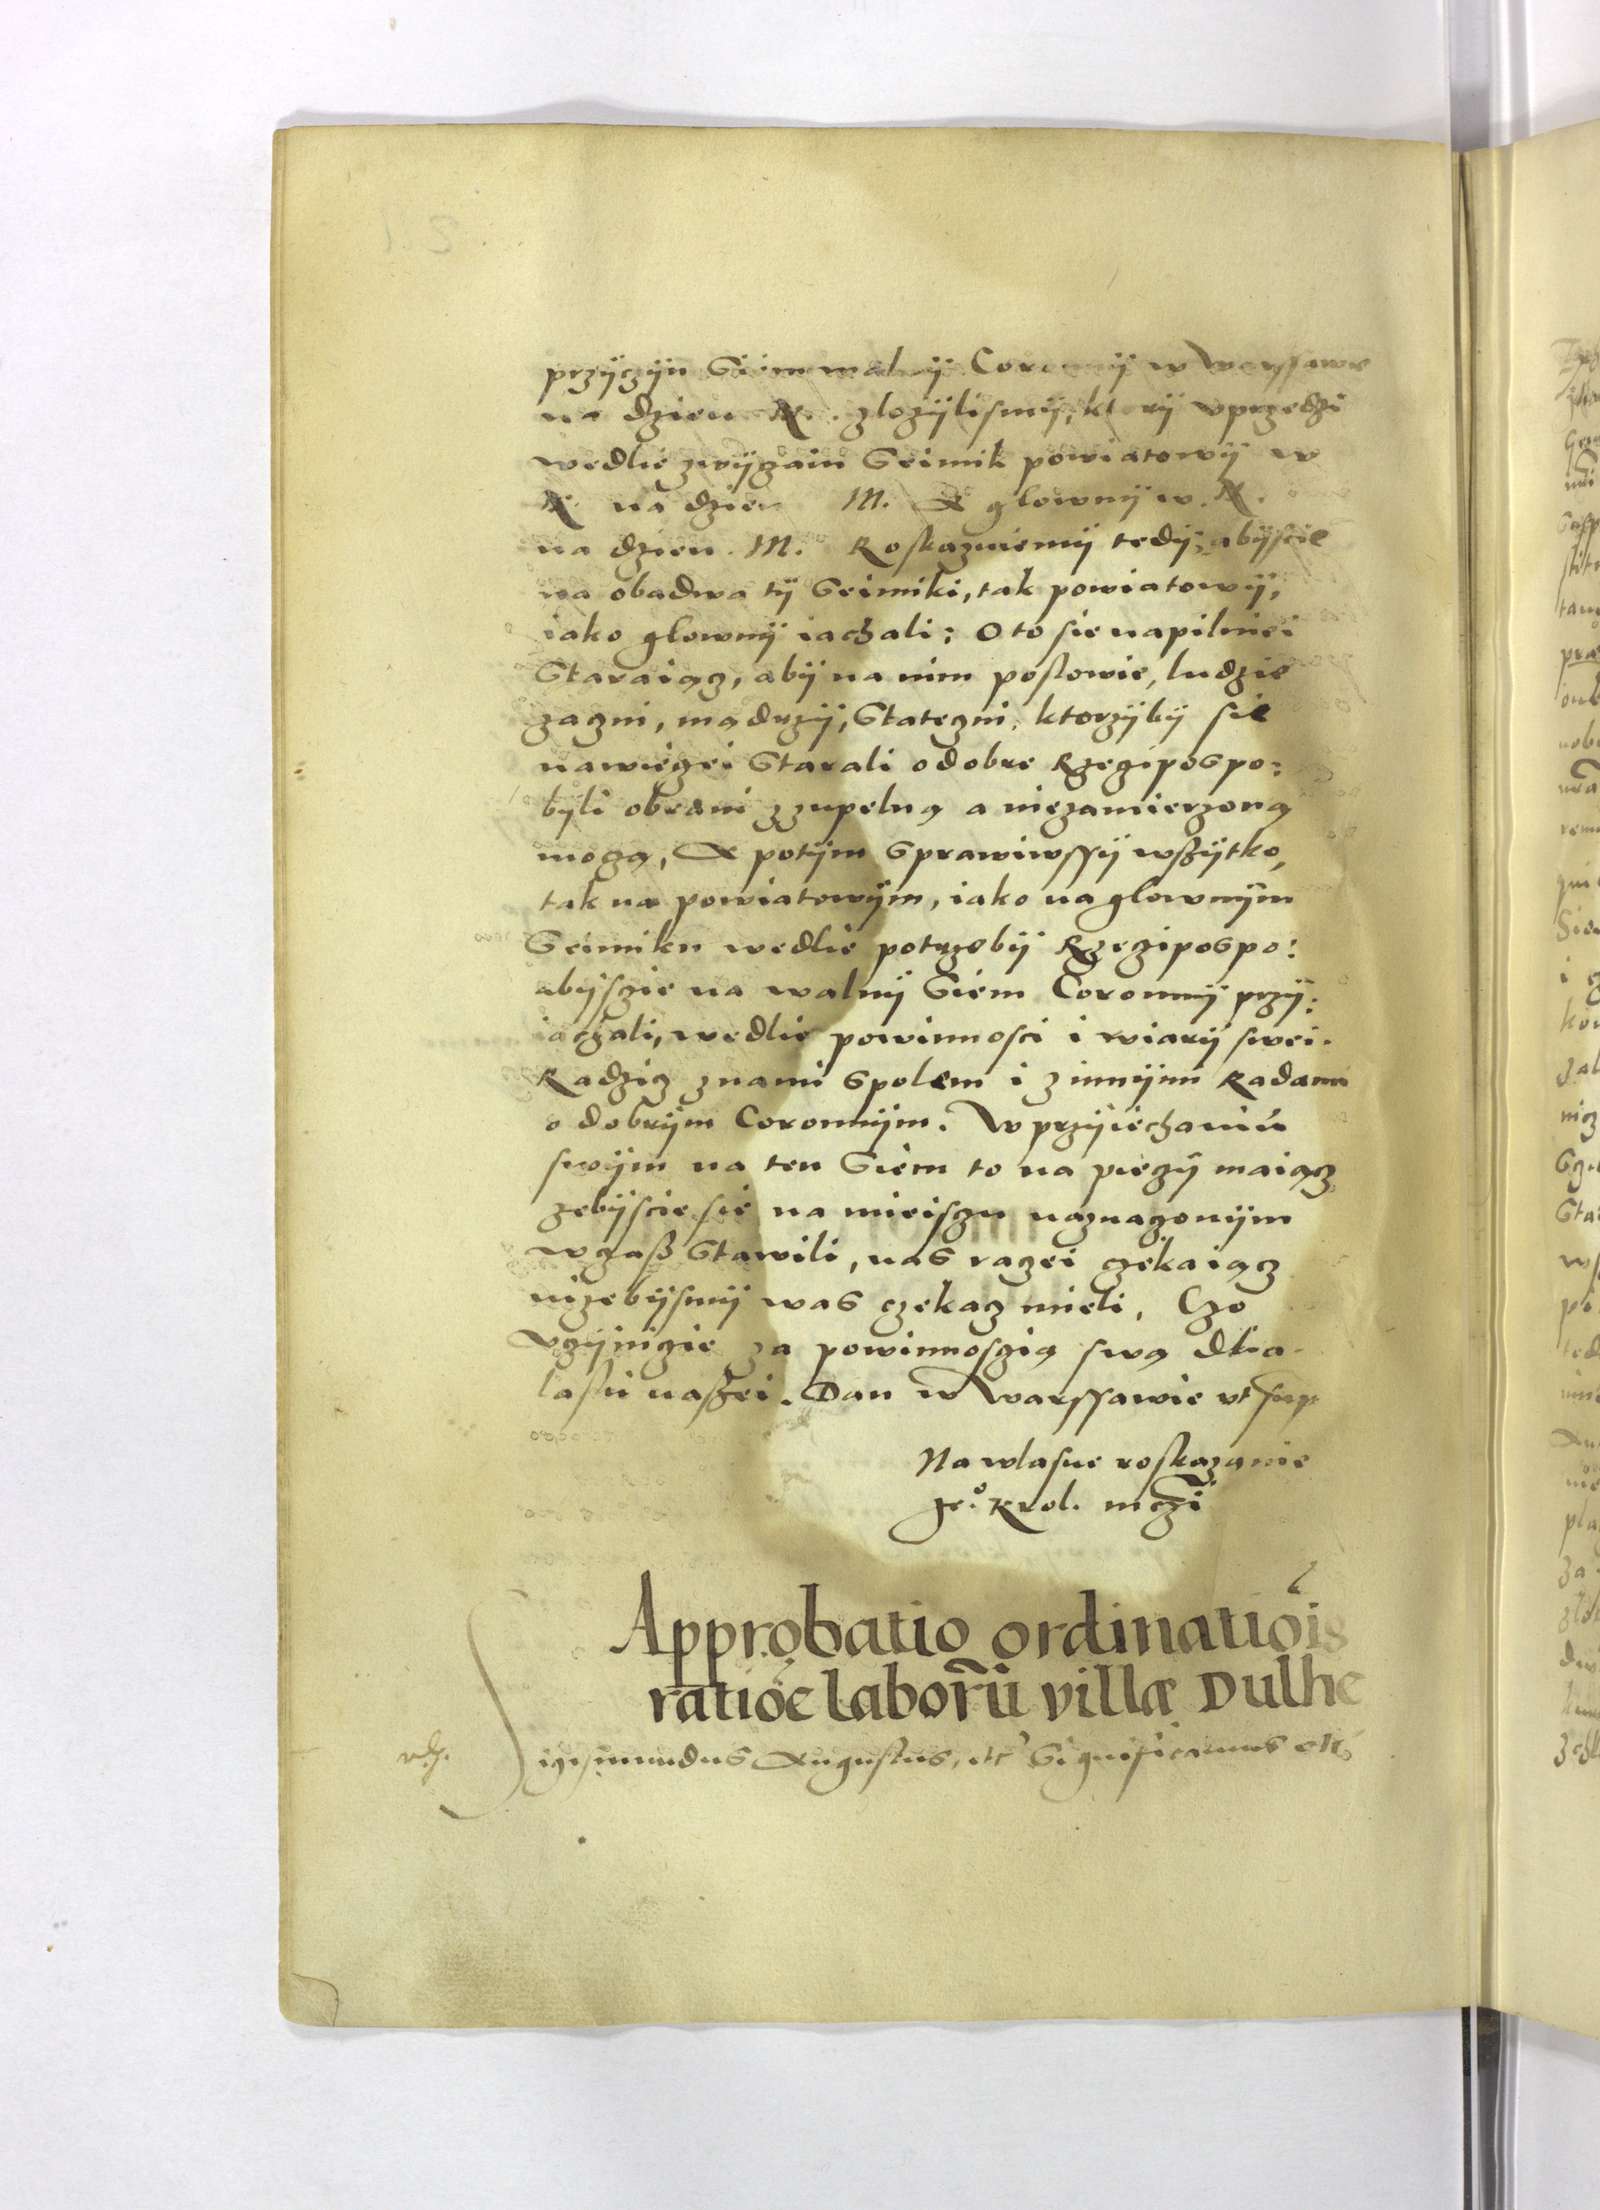 przÿczÿn Siem walnÿ Coronnÿ w Warssawe
na dzien N. zlozÿlismÿ, ktorÿ vprzedzi
wedlie zwÿczaiu Seimik powiatowÿ w
N. na dzien M. A glownÿ w. N.
na dzien M. Roskazuiemÿ tedÿ, abÿscie
na obadwa tÿ Seimiki, tak powiatowÿ,
iako glownÿ iachali: O to sie napilniei
Staraiącz, abÿ na nim poslowie, ludzie
zaczni, mądrzÿ, Stateczni, ktorzÿbÿ sie
nawieczei Starali o dobre Rzeczipospo:
byli obrani z zupelną a niezamierzoną
moczą, A potÿm Sprawiwssÿ wszÿtko,
tak na powiatowÿm, iako na glownÿm
Seimiku wedlie potrzebÿ Rzeczipospo:
abÿscie na walnÿ Siem Coronnÿ przÿ:
iachali, wedlie powinnosci i wiarÿ swei.
Radzicz z nami Spolem i z innÿmi Radami
o dobrÿm Coronnÿm. W przÿiechaniu
swÿm na ten Siem to na pieczÿ maiącz
zebÿscie sie na mieisczu naznaczonÿm
w czass Stawili, nas raczei czekaiącz
nizebÿsmÿ was czekacz mieli. Czo
Vczÿnicie za powinnosczią swą dlia
laski naszei. Dan w Warssawie vt sup
Na wlasne roskazanie
Je.º Krol. mczi
Approbatio ordinatiois
ratioe laborũ villæ Dulhe
Sigismundus Augustus, etc Significamus etc